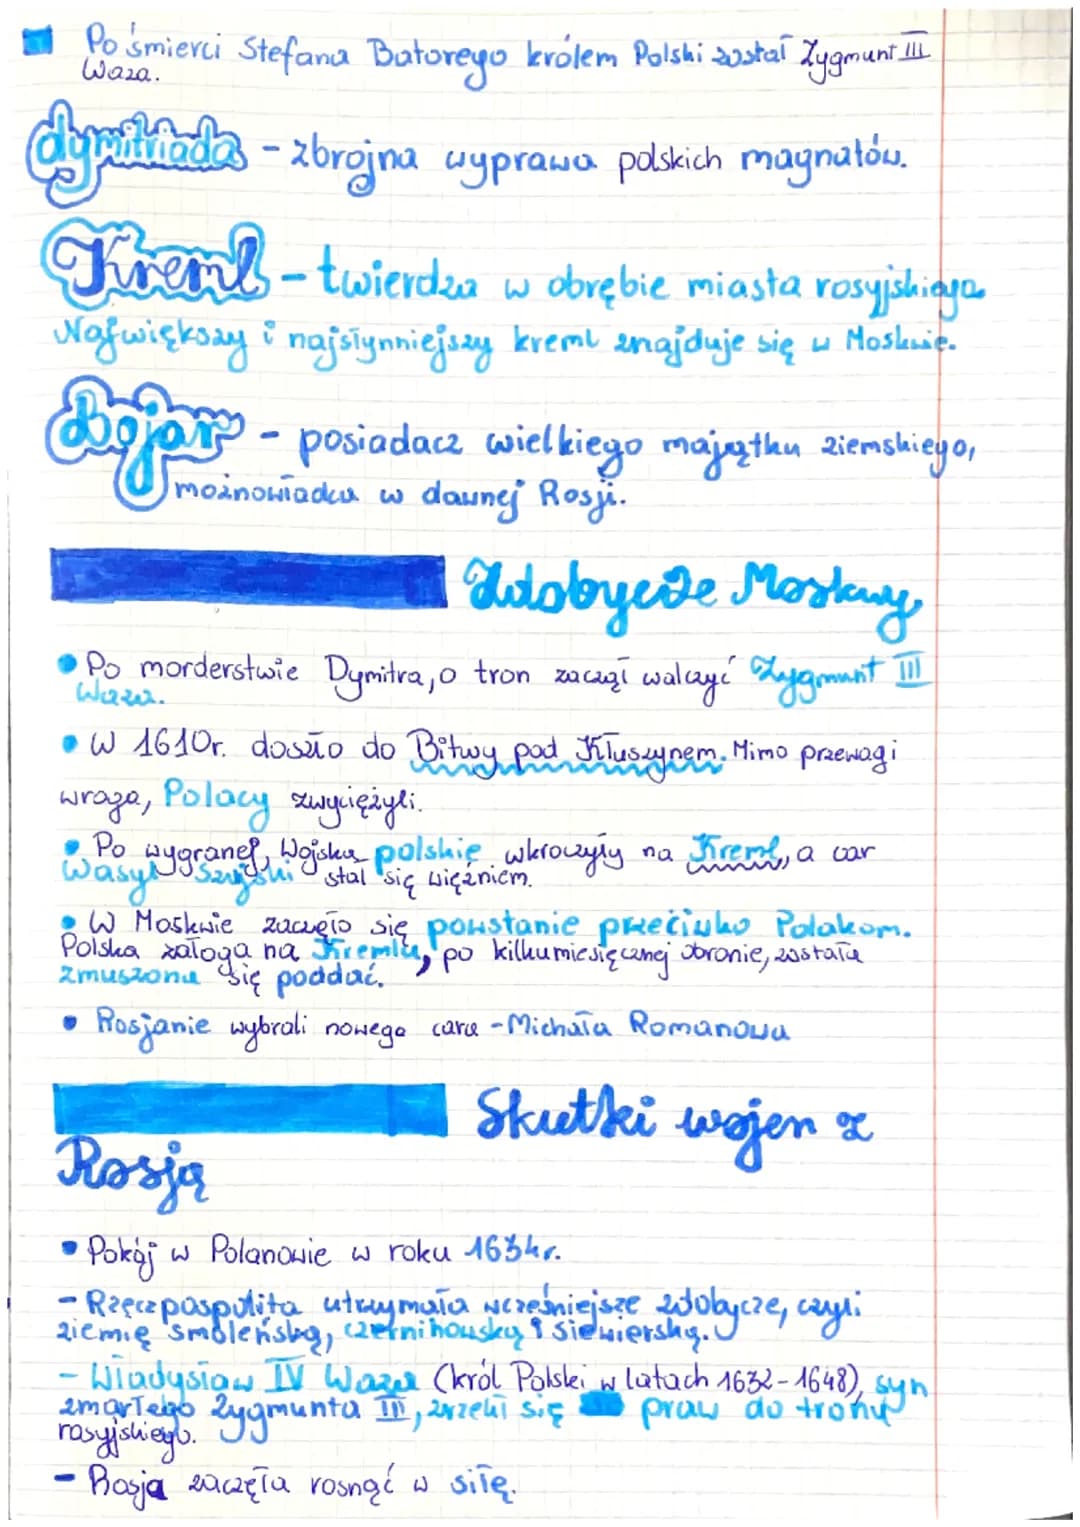 Po śmierci Stefana Batorego królem Polski został Zygmunt III
Waza.
dymitriada - zbrojna wyprawa polskich magnatów.
Kreml - twierdza w obrębie miasta rosyjskiego.
Największy i najsłynniejszy kreml znajduje się w Moskwie.
Bojar - posiadacz wielkiego majątku ziemskiego,
możnowładca w dawnej Rosji.
Zdobycie Moskwy
• Po morderstwie Dymitra, o tron zaczął walczyć Zygmunt III
Waza.
• W 1610r. doszło do Bitwy pod Kłuszynem. Mimo przewagi
wroga, Polacy zwyciężyli.
• Po wygranej, Wojska polskie wkroczyły na Kreml, a car
Wasyl Szujski stał się więźniem.
• W Moskwie zaczęło się powstanie przeciwko Polakom.
Polska załoga na Kremlu, po kilkumiesięcznej obronie, została
zmuszona się poddać.
• Rosjanie wybrali nowego cara - Michała Romanowa
Skutki wojen z
Rosją
• Pokój w Polanowie w roku 1634r.
- Rzeczpospolita utrzymała wcześniejsze zdobycze, czyli
ziemię smoleńską, czernihowską i siewierską.
- Władysław IV Waza (król Polski w latach 1632-1648), syn
zmarłego Zygmunta III, zrzekł się praw do tronu
rosyjskiego.
- Rosja zaczęła rosnąć w siłę.